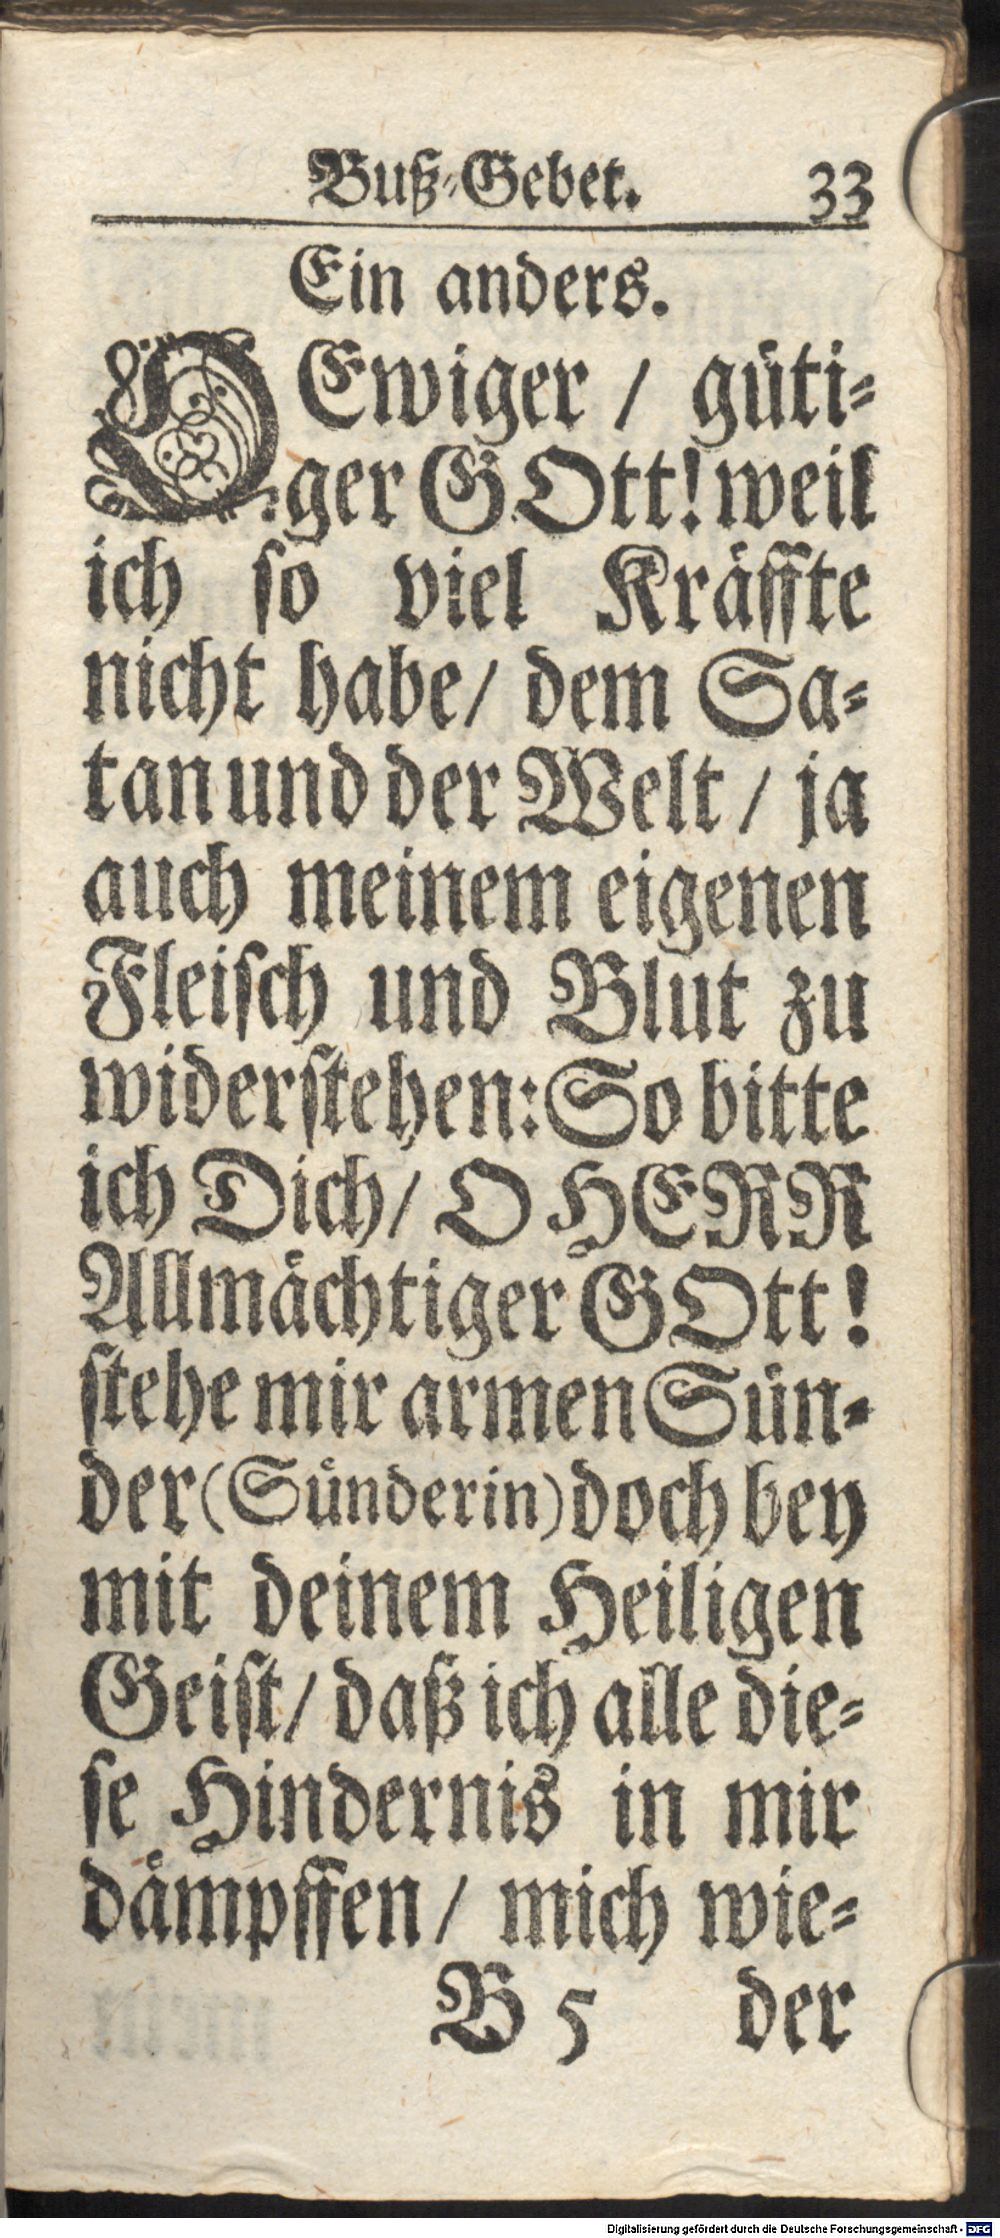 Buß-Gebet. 33
Ein anders.
O Ewiger / güti-
ger GOtt! weil
ich so viel Kräffte
nicht habe / dem Sa-
tan und der Welt / ja
auch meinem eigenen
Fleisch und Blut zu
widerstehen: So bitte
ich Dich / O HERR
Allmächtiger GOtt!
stehe mir armen Sün-
der (Sünderin) doch bey
mit deinem Heiligen
Geist / daß ich alle die-
se Hindernis in mir
dämpffen / mich wie-
B 5 der
Digitalisierung gefördert durch die Deutsche Forschungsgemeinschaft - DFG